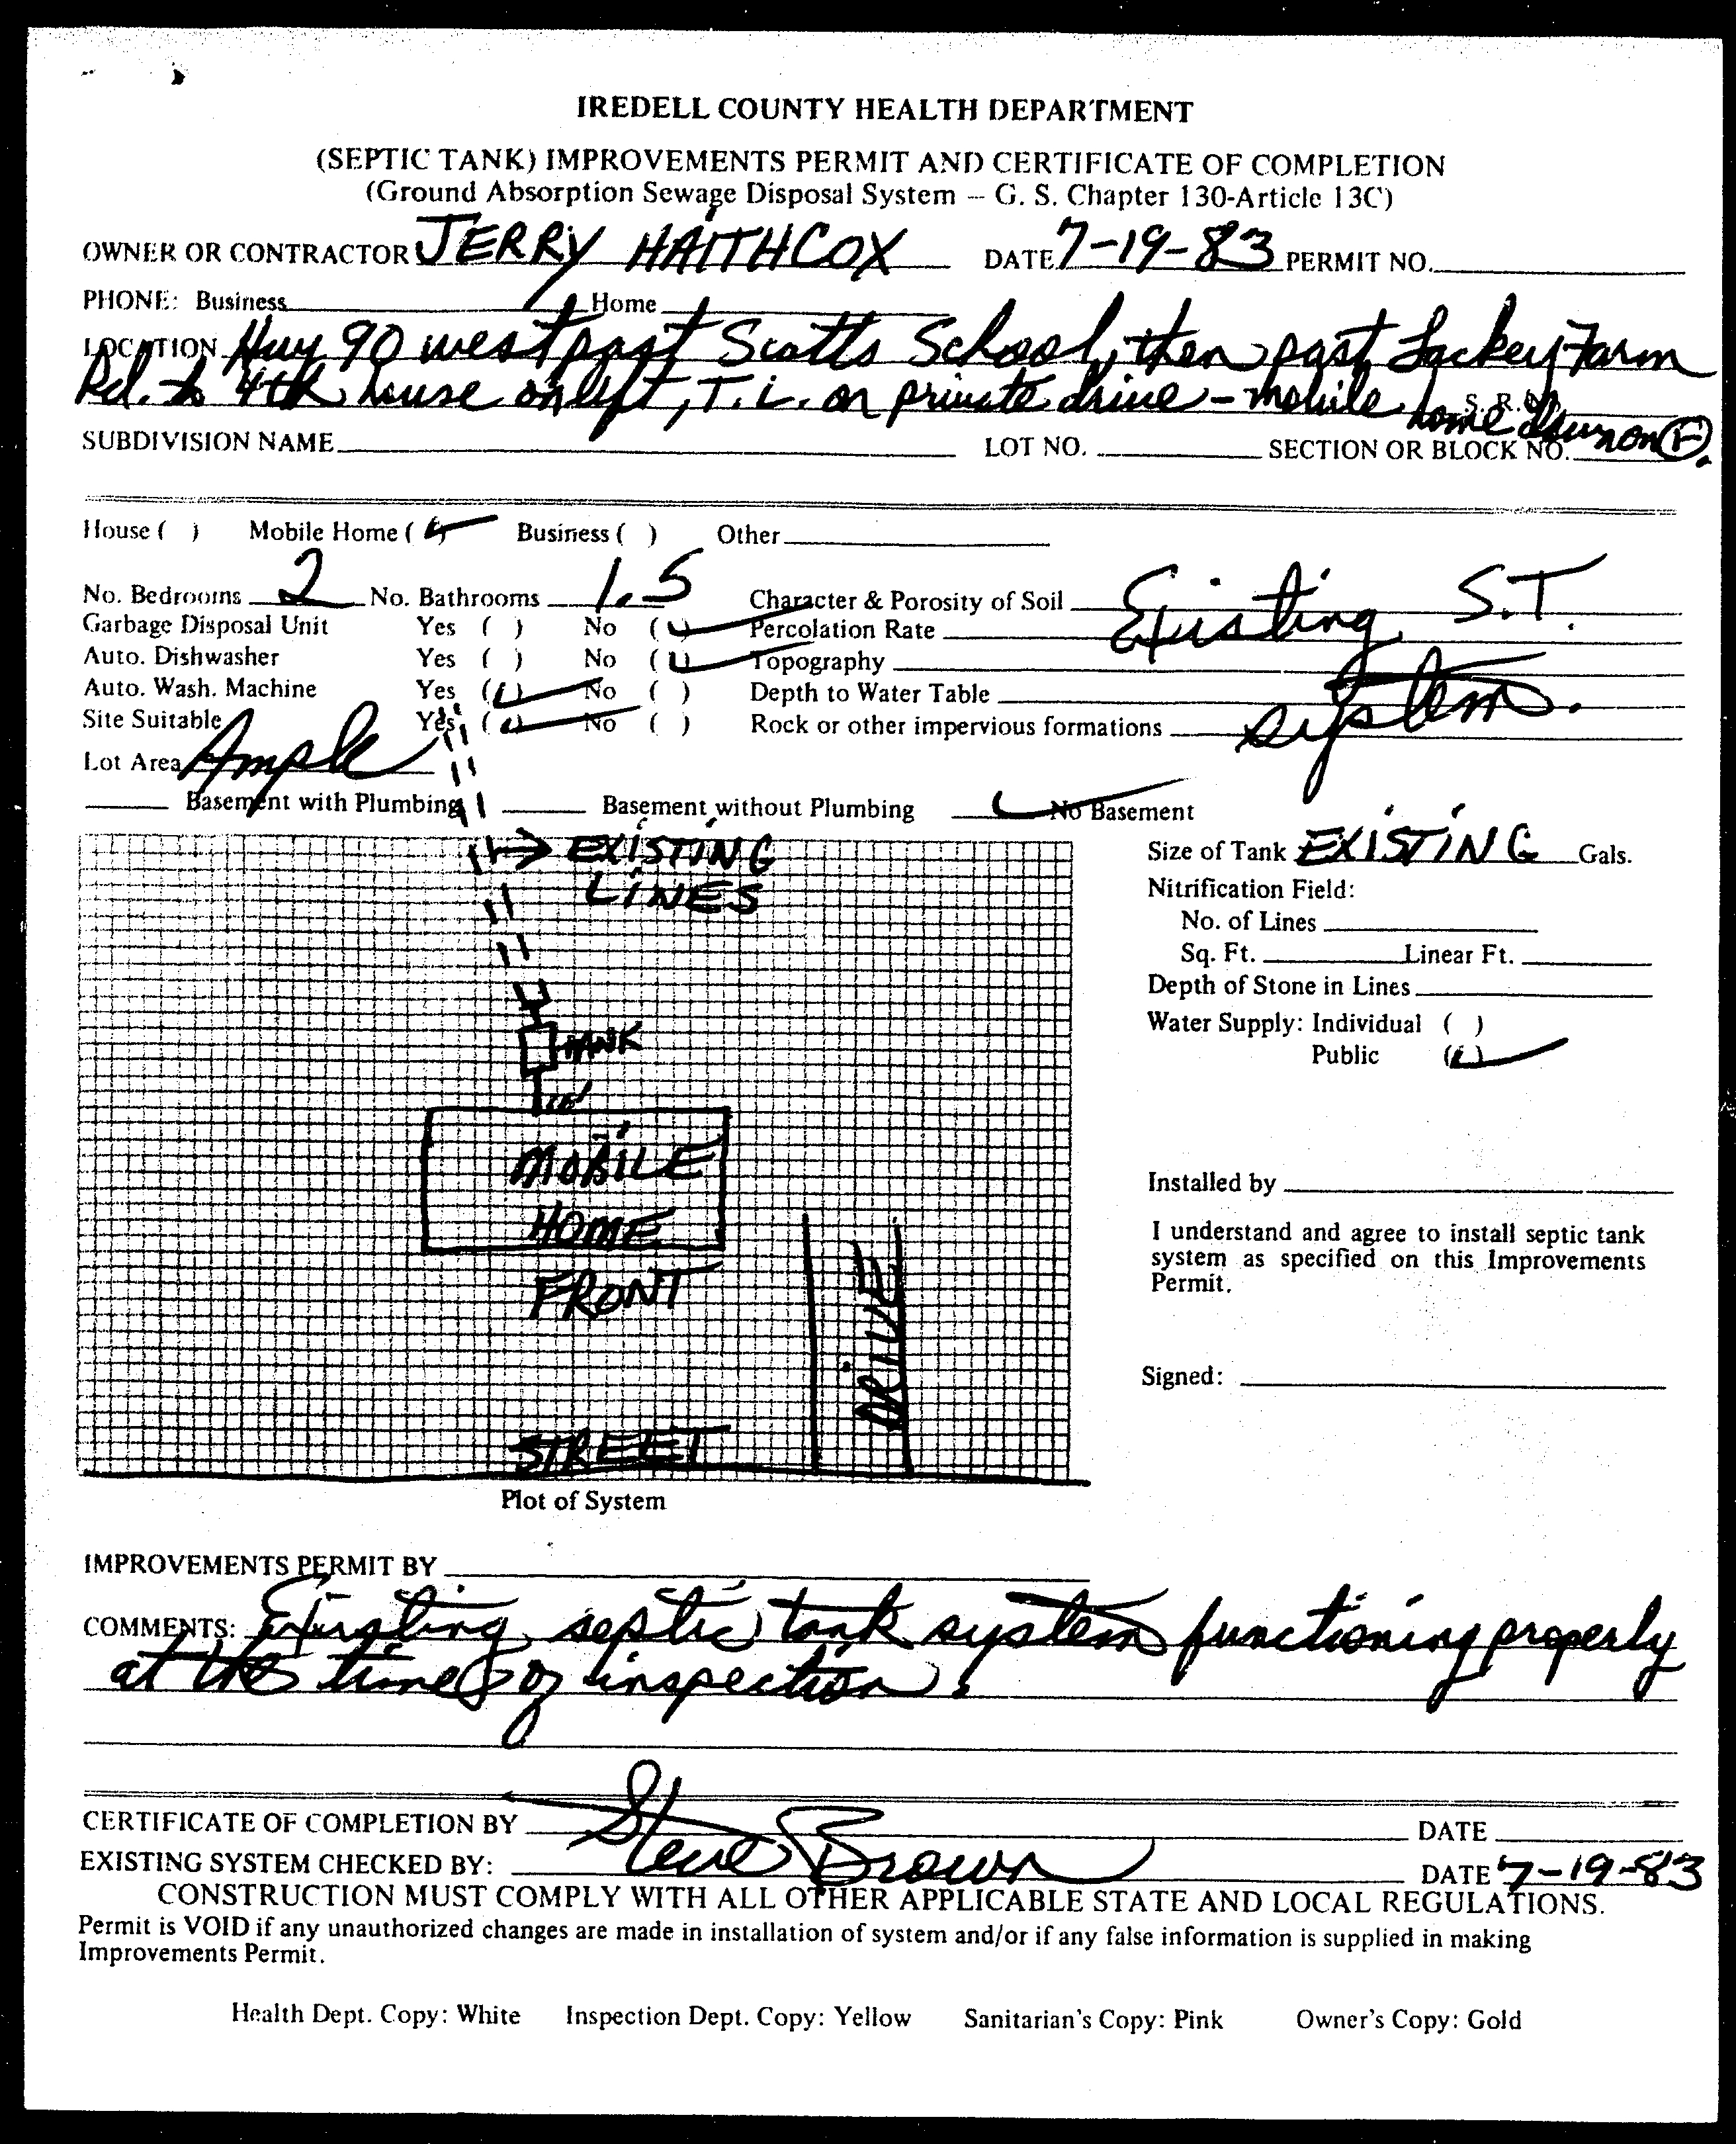 IREDELL COUNTY HEALTH DEPARTMENT
(SEPTIC TANK) IMPROVEMENTS PERMIT AND CERTIFICATE OF COMPLETION
(Ground Absorption Sewage Disposal System -- G. S. Chapter 130-Article 13C)
OWNER OR CONTRACTOR JERRY HAITHCOX DATE 7-19-83 PERMIT NO.
PHONE: Business Home
LOCATION Hwy 90 west past Scotts School, then past Lackey Farm
Rd. to 4th house on left, T.L. on private drive - mobile home down on
S. R.
SUBDIVISION NAME LOT NO. SECTION OR BLOCK NO.
House ( ) Mobile Home (✓) Business ( ) Other
No. Bedrooms 2 No. Bathrooms 1.5 Character & Porosity of Soil Existing S.T.
Garbage Disposal Unit Yes ( ) No (✓) Percolation Rate
Auto. Dishwasher Yes ( ) No (✓) Topography system.
Auto. Wash. Machine Yes (✓) No ( ) Depth to Water Table
Site Suitable Yes (✓) No ( ) Rock or other impervious formations
Lot Area Ample
Basement with Plumbing Basement without Plumbing ✓ No Basement
EXISTING
LINES
TANK
10'
MOBILE
HOME
FRONT
DRIVE
STREET
Plot of System
Size of Tank EXISTING Gals.
Nitrification Field:
No. of Lines
Sq. Ft. Linear Ft.
Depth of Stone in Lines
Water Supply: Individual ( )
Public (✓)
Installed by
I understand and agree to install septic tank
system as specified on this Improvements
Permit.
Signed:
IMPROVEMENTS PERMIT BY
COMMENTS: Existing septic tank system functioning properly
at the time of inspection.
CERTIFICATE OF COMPLETION BY DATE
EXISTING SYSTEM CHECKED BY: Steve Brown DATE 7-19-83
CONSTRUCTION MUST COMPLY WITH ALL OTHER APPLICABLE STATE AND LOCAL REGULATIONS.
Permit is VOID if any unauthorized changes are made in installation of system and/or if any false information is supplied in making
Improvements Permit.
Health Dept. Copy: White Inspection Dept. Copy: Yellow Sanitarian's Copy: Pink Owner's Copy: Gold